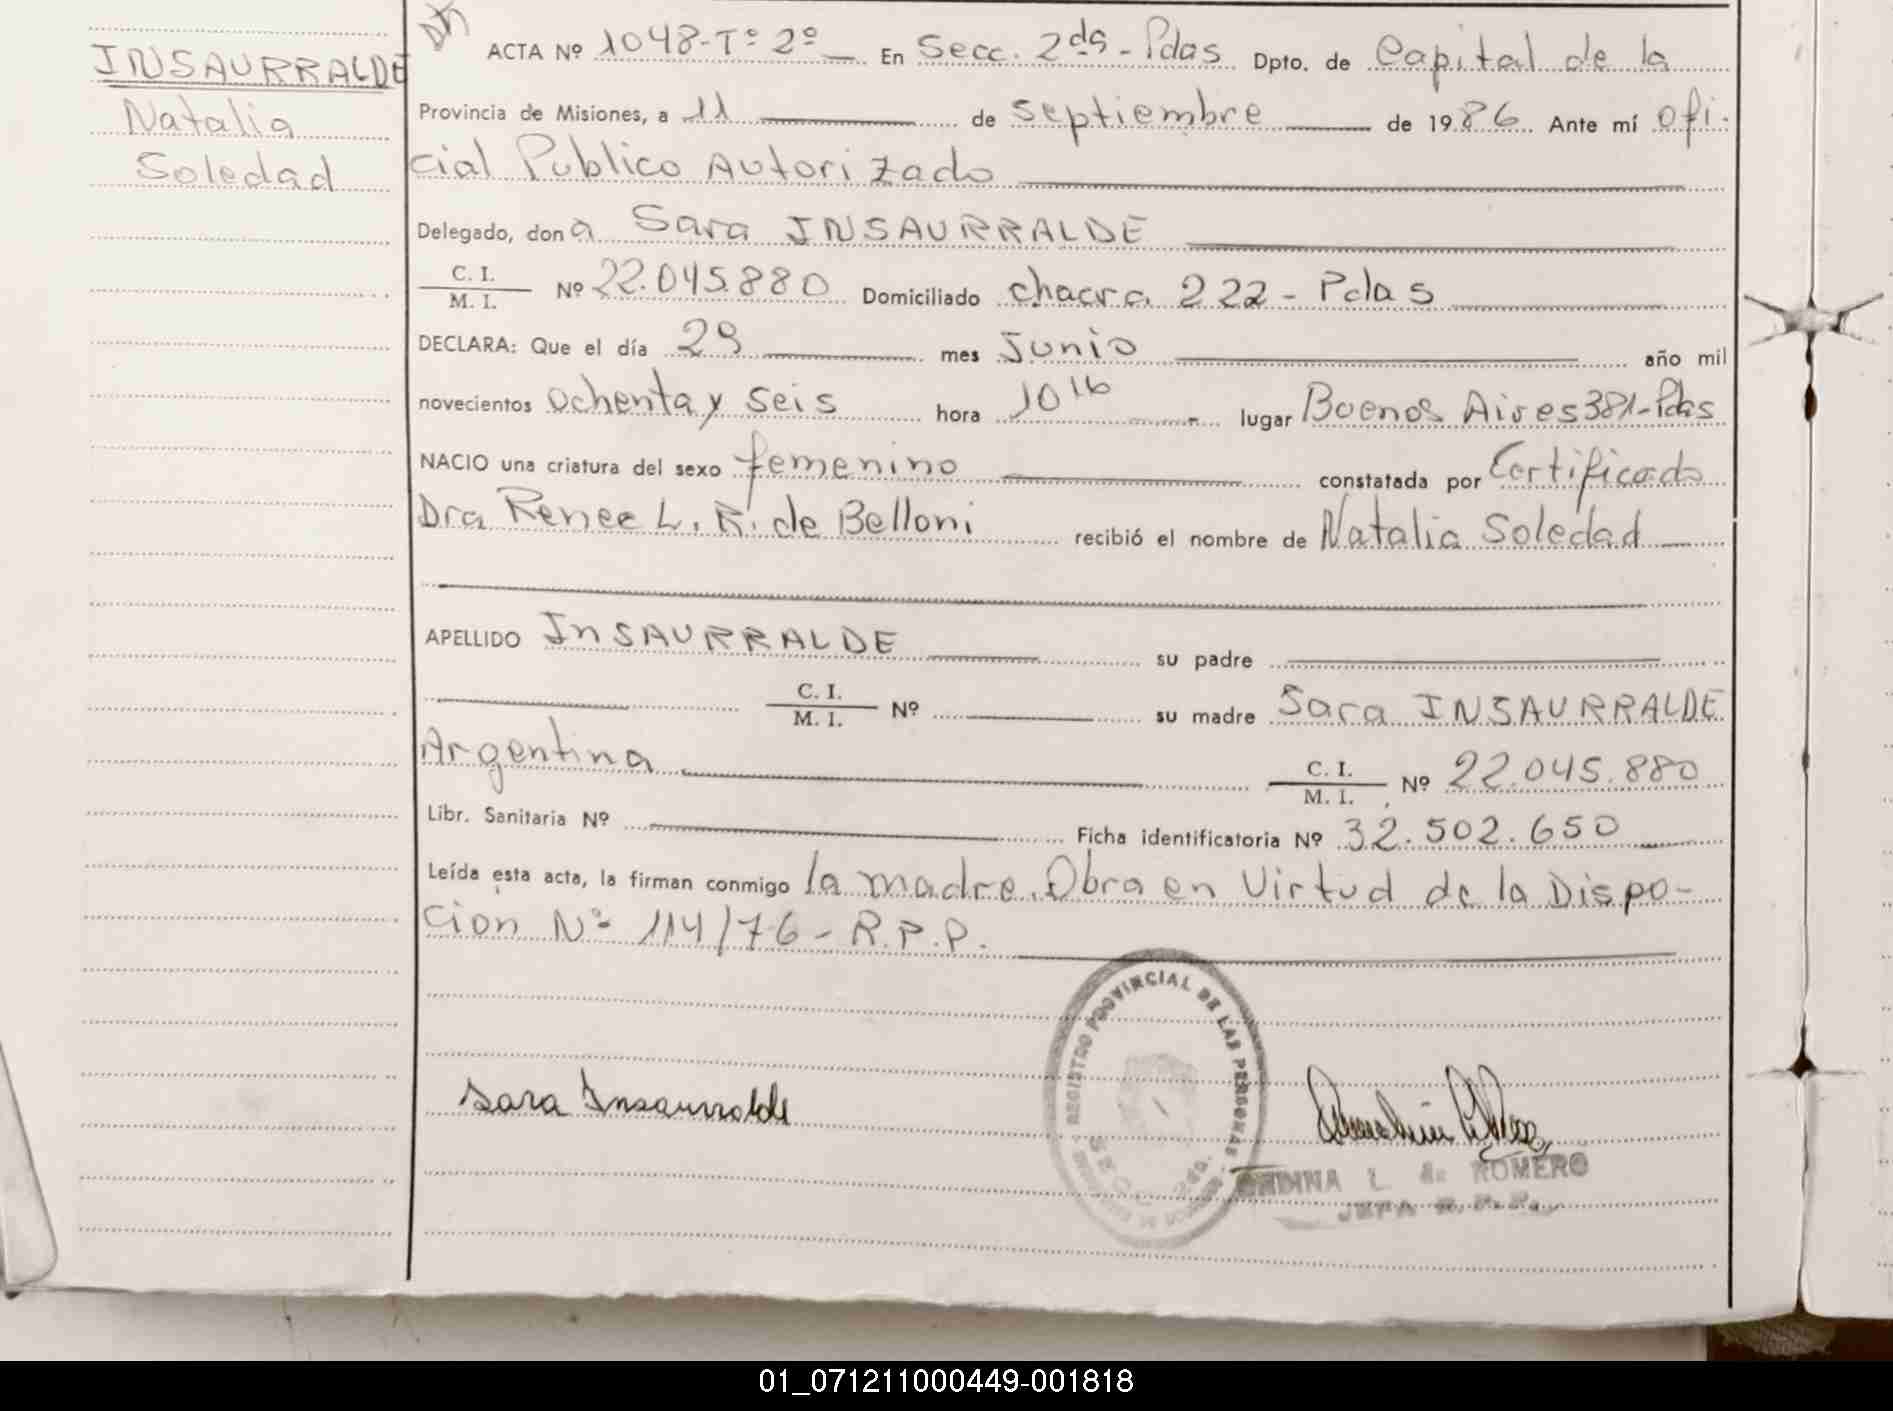 INSAURRALDE
Natalia
Soledad
ACTA Nº 1048-Tº 2º En Secc. 2da - Pdas Dpto. de Capital de la
Provincia de Misiones, a 11 de Septiembre de 1986. Ante mí Ofi-
cial Publico Autorizado
Delegado, dona Sara INSAURRALDE
C. I.
M. I. Nº 22.045.880 Domiciliado chacra 222 - Pdas
DECLARA: Que el día 29 mes Junio año mil
novecientos Ochenta y Seis hora 10 16 lugar Buenos Aires 381-Pdas
NACIO una criatura del sexo femenino constatada por Certificado
Dra Renee L. R. de Belloni recibió el nombre de Natalia Soledad
APELLIDO INSAURRALDE su padre
C. I.
M. I. Nº su madre Sara INSAURRALDE
Argentina C. I.
M. I. Nº 22.045.880
Libr. Sanitaria Nº Ficha identificatoria Nº 32.502.650
Leída esta acta, la firman conmigo la madre. Obra en Virtud de la Dispo-
cion Nº 114/76 - R.P.P.
REGISTRO PROVINCIAL DE LAS PERSONAS
Sara Insaurralde
L. de ROMERO
JEFA R.P.P.
01_071211000449-001818